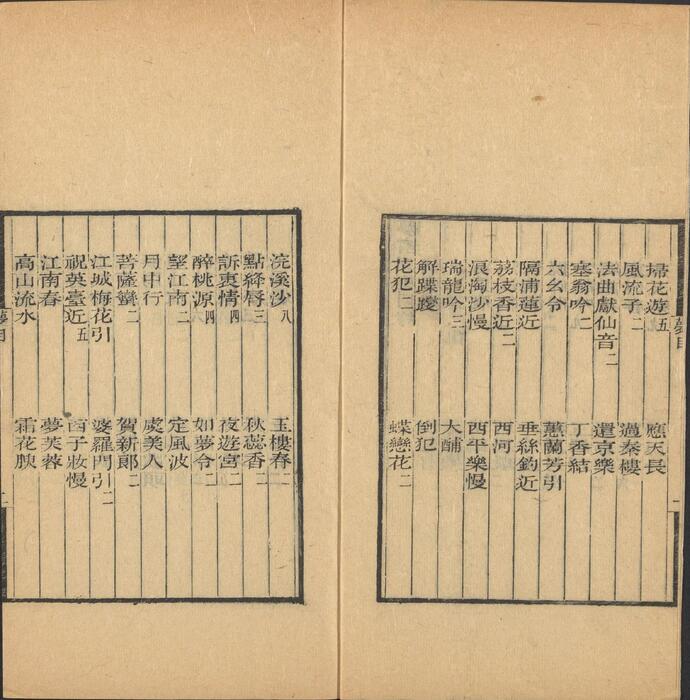 掃花遊五 應天長
風流子二 過秦樓
法曲獻仙音二 還京樂
塞翁吟二 丁香結
六幺令 蕙蘭芳引
隔浦蓮近 垂絲釣近
荔枝香近二 西河
浪淘沙慢 西平樂慢
瑞龍吟三 大酺
解蹀躞 倒犯
花犯二 蝶戀花二
浣溪沙八 玉樓春二
點絳脣三 秋蕊香二
訴衷情四 夜遊宮二
醉桃源四 如夢令二
望江南二 定風波
月中行 虞美人
菩薩蠻二 賀新郎二
江城梅花引 婆羅門引二
祝英臺近五 西子妝慢
江南春 夢芙蓉
高山流水 霜花腴
夢目
二
夢目
一